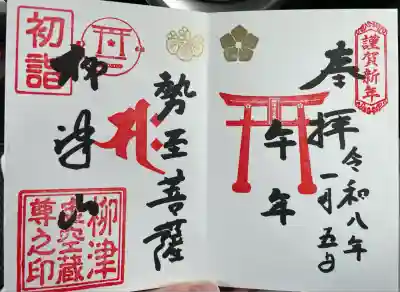 謹賀新年
奉拝
令和八年
一月五日
午年
勢至菩薩
柳津山
初詣
柳津
虚空蔵
尊之印